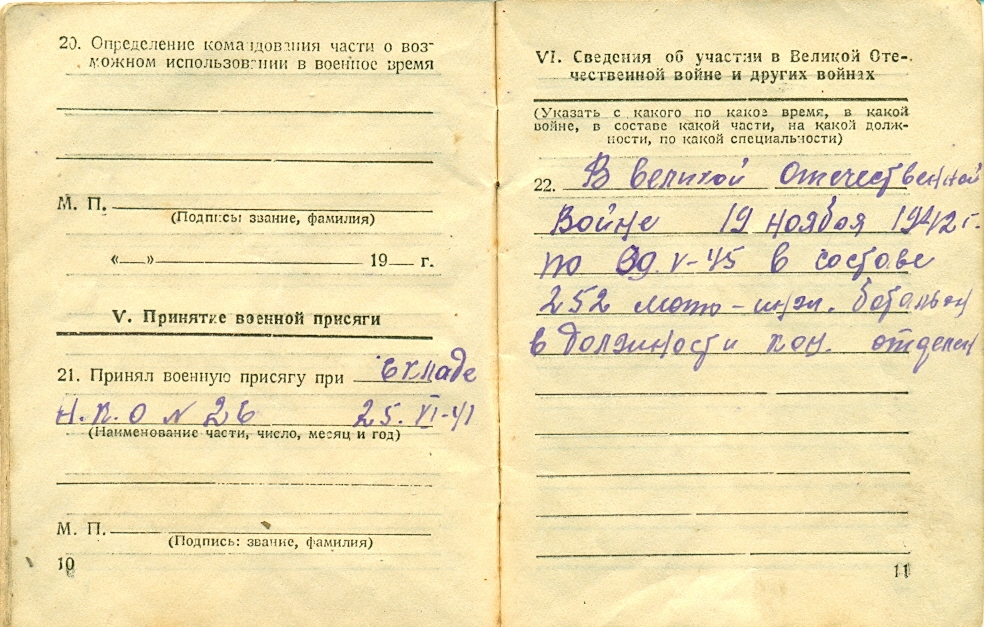 20. Определение командования части о воз-
можном использовании в военное время
М. П.
(Подпись: звание, фамилия)
«—» 19 г.
V. Принятие военной присяги
21. Принял военную присягу при складе
Н.К.О № 26 25.VI-41
(Наименование части, число, месяц и год)
М. П.
(Подпись: звание, фамилия)
10
VI. Сведения об участии в Великой Оте-
чественной войне и других войнах
(Указать с какого по какое время, в какой
войне, в составе какой части, на какой долж-
ности, по какой специальности)
22. В великой Отечественной
Войне 19 ноября 1942 г.
по 09.V-45 в составе
252 мото-инж.ботальон
в должности ком. отделен
11